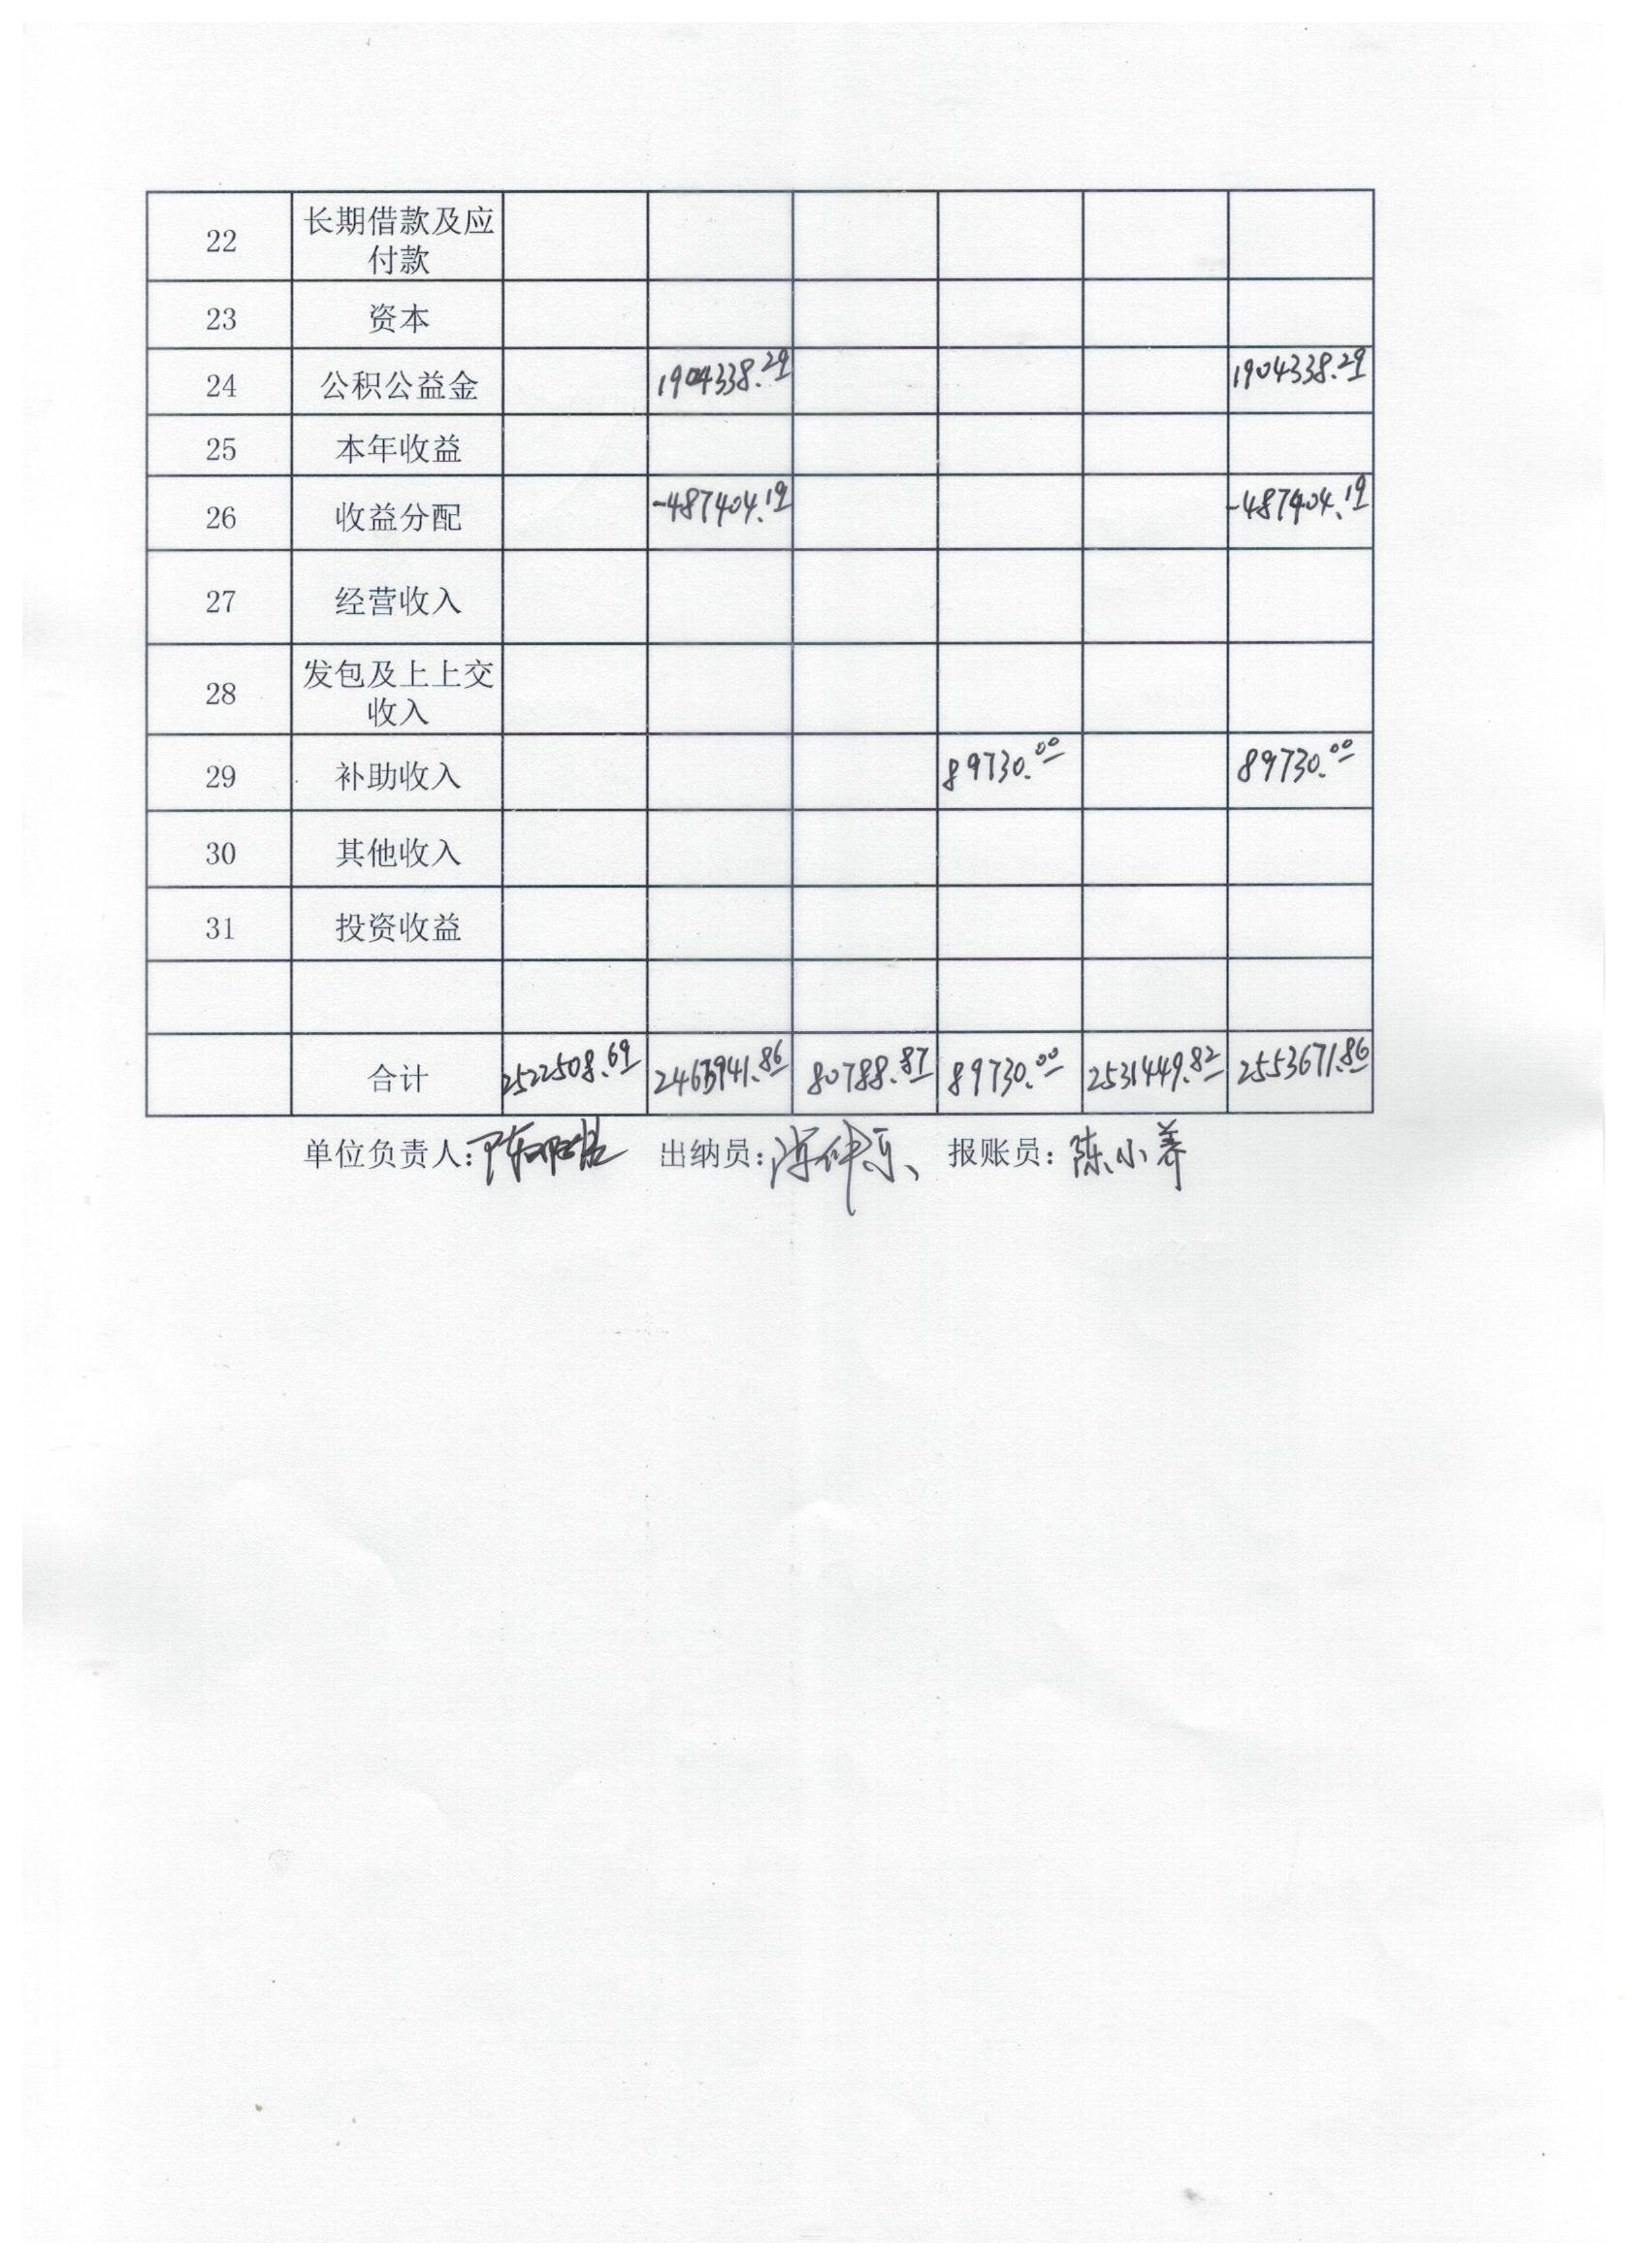 22 长期借款及应
付款
23 资本
24 公积公益金 1904338.29 1904338.29
25 本年收益
26 收益分配 -487404.19 -487404.19
27 经营收入
28 发包及上上交
收入
29 补助收入 89730.00 89730.00
30 其他收入
31 投资收益
合计 2522508.69 2463941.86 80788.87 89730.00 2531449.82 2553671.86
单位负责人: 出纳员: 报账员: 陈小养